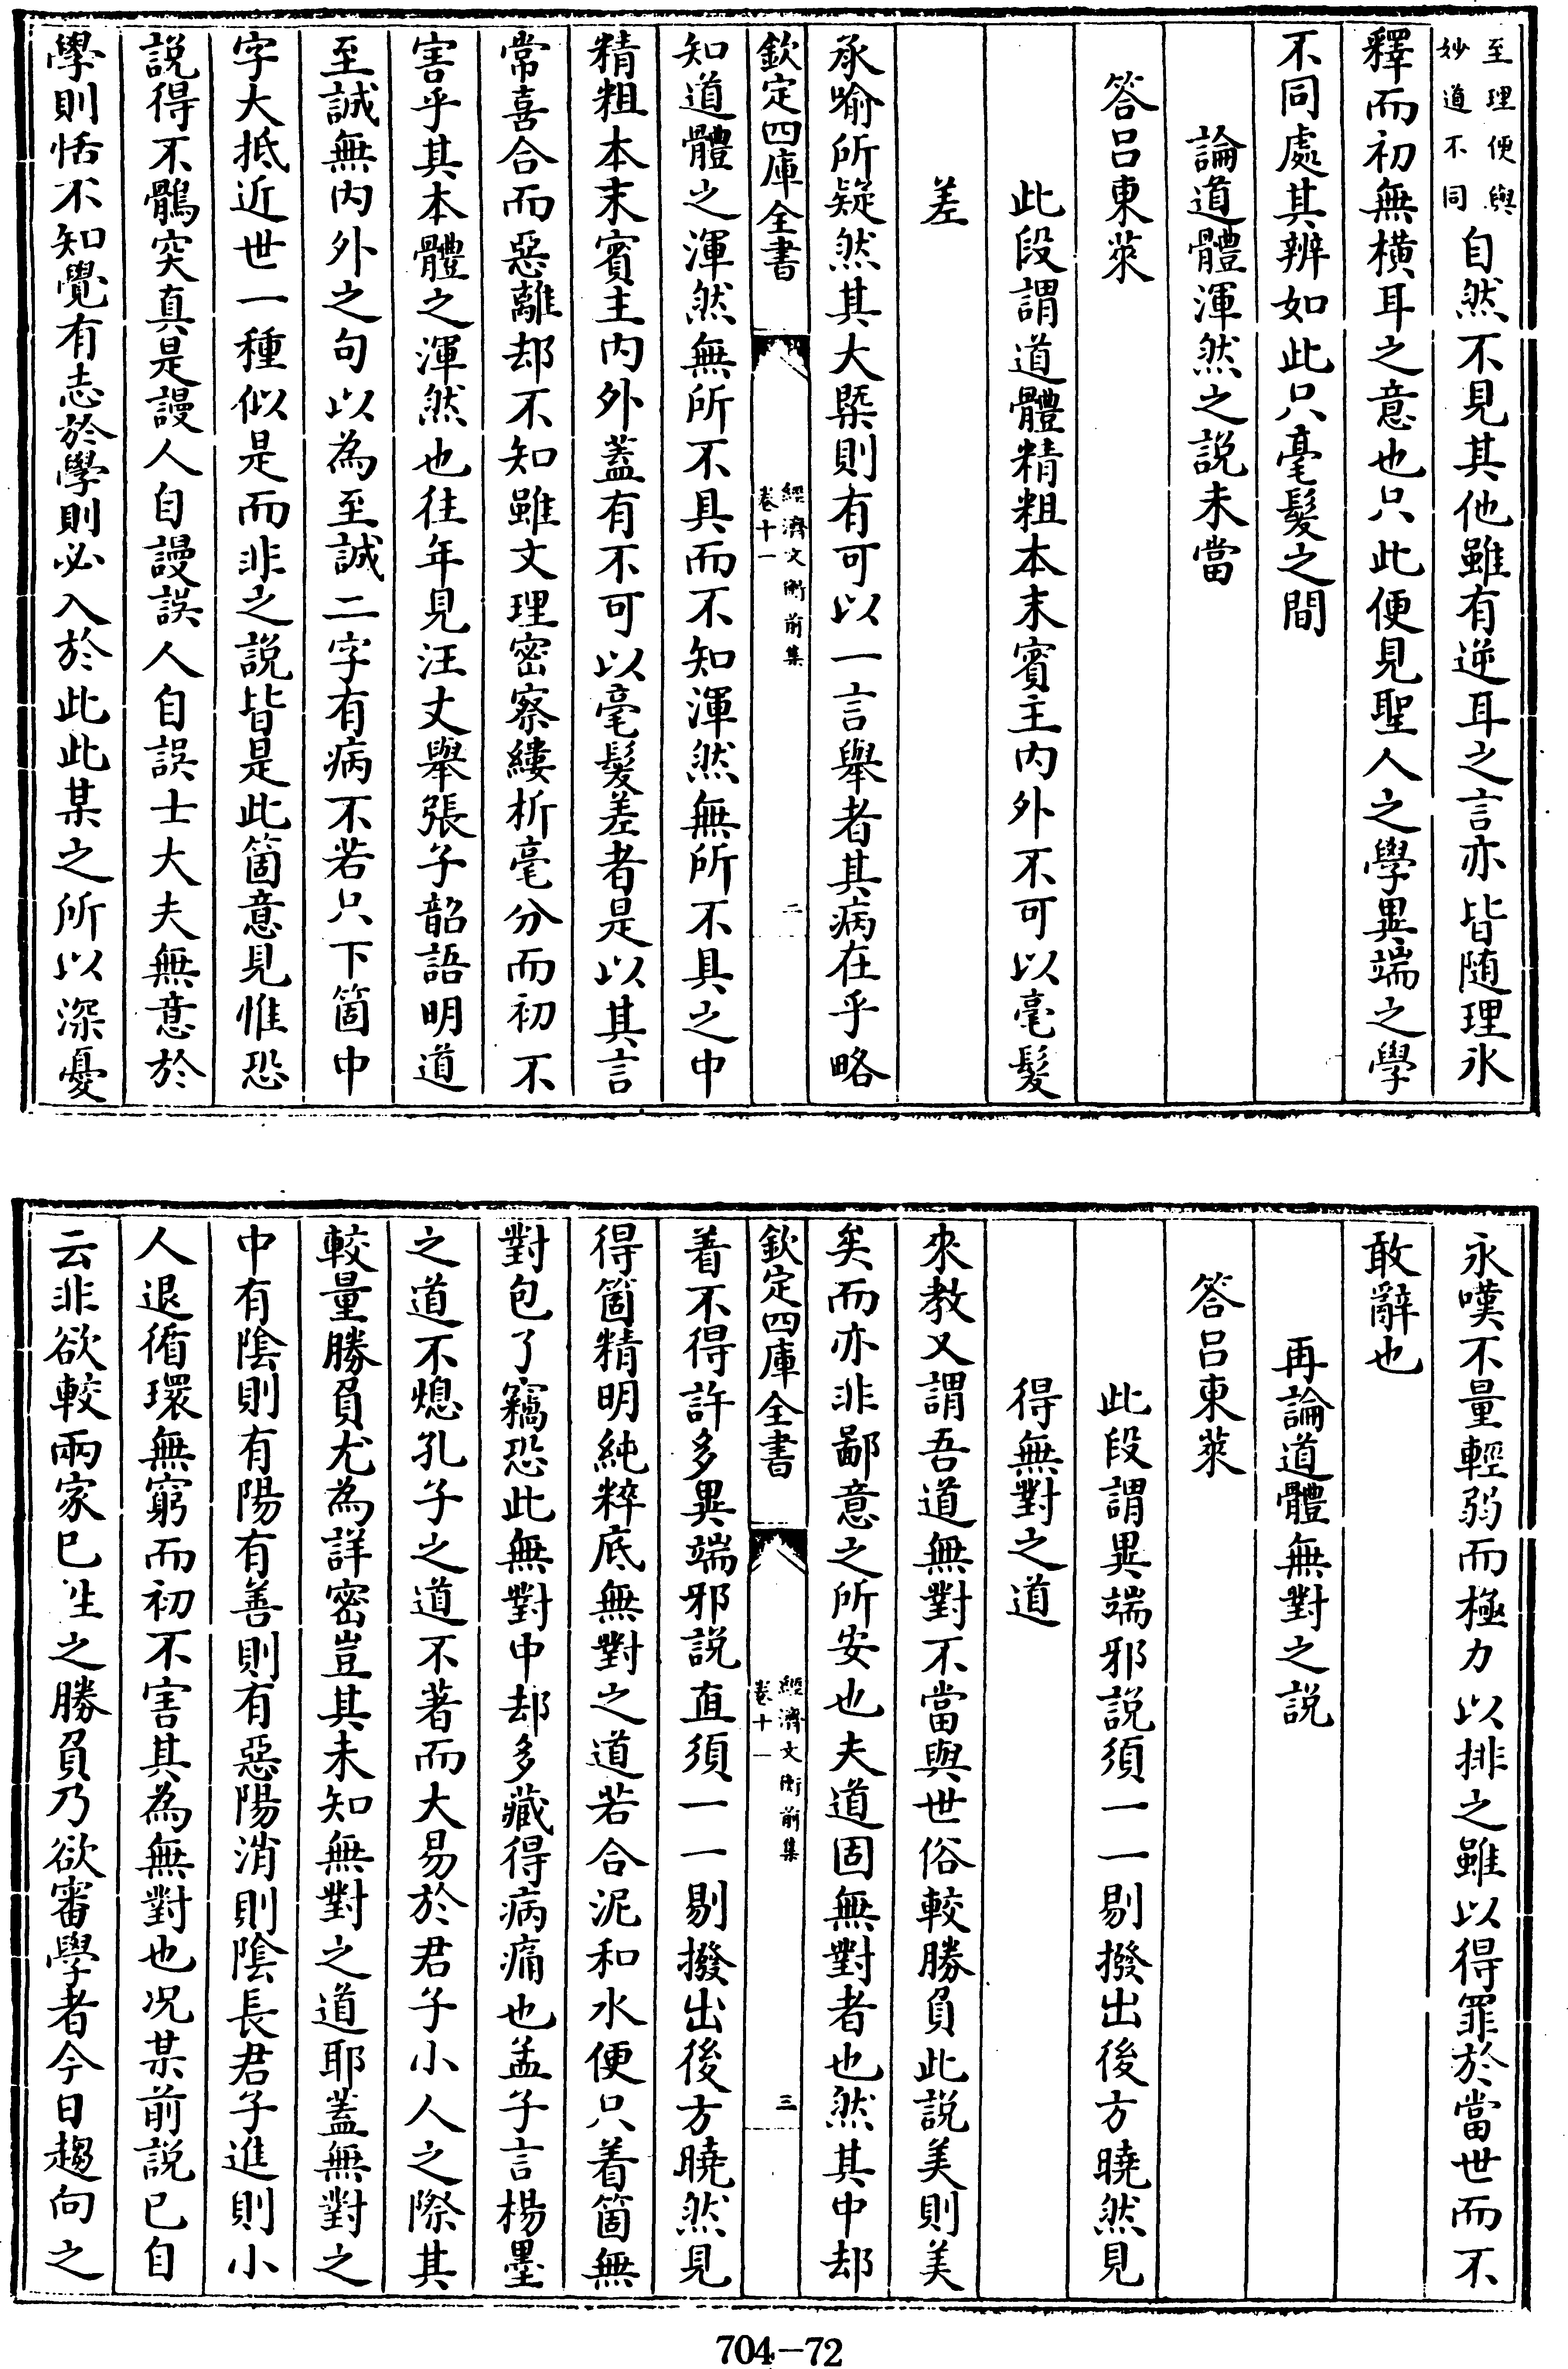 至理便與
妙道不同
自然不見其他雖有逆耳之言亦皆随理氷
釋而初無橫耳之意也只此便見聖人之學異端之學
不同處其辨如此只毫髮之間
論道體渾然之説未當
答呂東萊
此段謂道體精粗本末賓主内外不可以毫髮
差
承喻所疑然其大槩則有可以一言舉者其病在乎略
欽定四庫全書
經濟文衡前集
卷十一
二
知道體之渾然無所不具而不知渾然無所不具之中
精粗本末賓主内外蓋有不可以毫髮差者是以其言
常喜合而惡離却不知雖文理密察縷析毫分而初不
害乎其本體之渾然也往年見汪丈舉張子韶語明道
至誠無内外之句以為至誠二字有病不若只下箇中
字大抵近世一種似是而非之説皆是此箇意見惟恐
説得不鶻突真是謾人自謾誤人自誤士大夫無意於
學則恬不知覺有志於學則必入於此此某之所以深憂
永嘆不量輕弱而極力以排之雖以得罪於當世而不
敢辭也
再論道體無對之説
答呂東萊
此段謂異端邪説須一一剔撥出後方曉然見
得無對之道
來教又謂吾道無對不當與世俗較勝負此説美則美
矣而亦非鄙意之所安也夫道固無對者也然其中却
欽定四庫全書
經濟文衡前集
卷十一
三
着不得許多異端邪説直須一一剔撥出後方曉然見
得箇精明純粹底無對之道若合泥和水便只着箇無
對包了竊恐此無對中却多藏得病痛也孟子言楊墨
之道不熄孔子之道不著而大易於君子小人之際其
較量勝負尤為詳密豈其未知無對之道耶蓋無對之
中有陰則有陽有善則有惡陽消則陰長君子進則小
人退循環無窮而初不害其為無對也况某前説已自
云非欲較兩家已往之勝負乃欲審學者今日趨向之
704-72